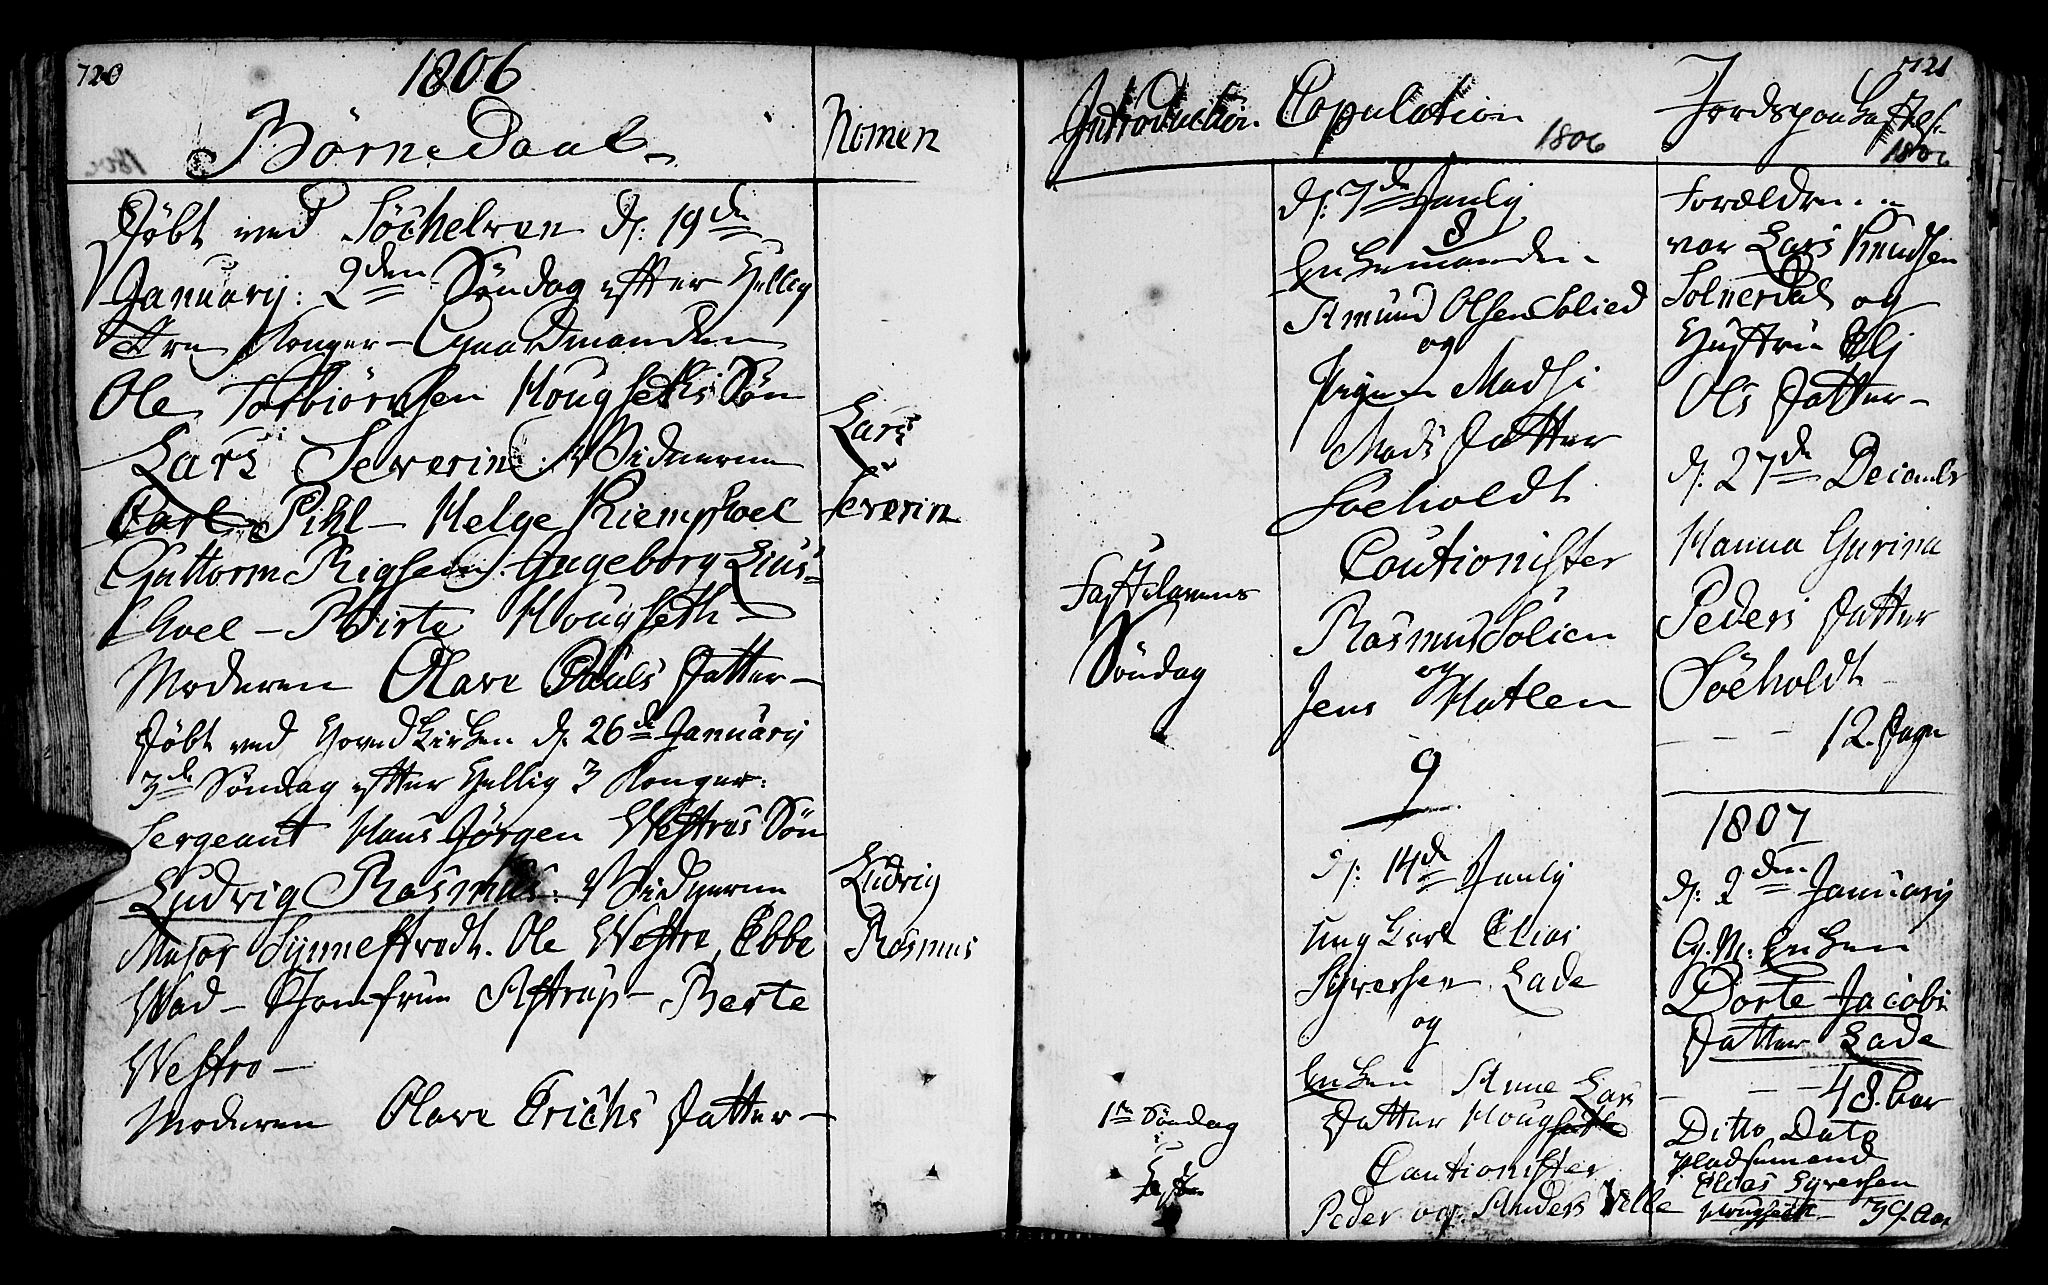 720
1806
Börne Daab
Nomen
Döbt ved Söchelven d: 19de
Januarij: 2den Söndag efter Hellig
tre Konger - Gaardmanden
Ole Torbiörnsen Hougseths Sön
Lars Severin: Vidnerne
Carl Pihl - Helge Kiemphoel
Guttorm Rigsem: Ingeborg Lius=
hoel - Birte Hougseth -
Moderen Olave Pauls Datter -
Döbt ved Hovedkirken d: 26de Januarij
3de Söndag efter Hellig 3 Konger:
Sergeant Hans Jörgen Westres Sön
Ludvig Rasmus: Vidnerne
Major Synnestvedt. Ole Westre, Ebbe
Wad - Jomfrue Astrup - Berte
Westre -
Moderen Olave Erichs Datter -
Lars
Severin
Ludvig
Rasmus
Introduction
Fastelavens
Söndag
1te Söndag
i
Faste
Copulation
1806
d: 7de Juulij
8
Enkemanden
Amund Olsen Solied
og
Pigen Madsi
Mads Datter
Söeholdt
Cautionister
Rasmus Solien
og
Jens Hatlen
9
d: 14de Juulij
Ung Karl Elias
Syversen Lade
og
Enken Anne Lars
Datter Hougseth
Cautionister
Peder og Anders Velle
721
Jordspaakastelse
1806
Forældrene
var Lars Knudsen
Solnerdal og
Hustrue Eli
Ols Datter -
d: 27de Decembr
Hanna Gurina
Peders Datter
Söeholdt
- - - 12. Dage
1807
d: 2den Januarij
G: M: Enken
Dorte Jacobs
Datter Lade
- - - 48. Aar
Ditto Dato
Pladsemand
Elias Syversen
Hougseth - 79. Aar